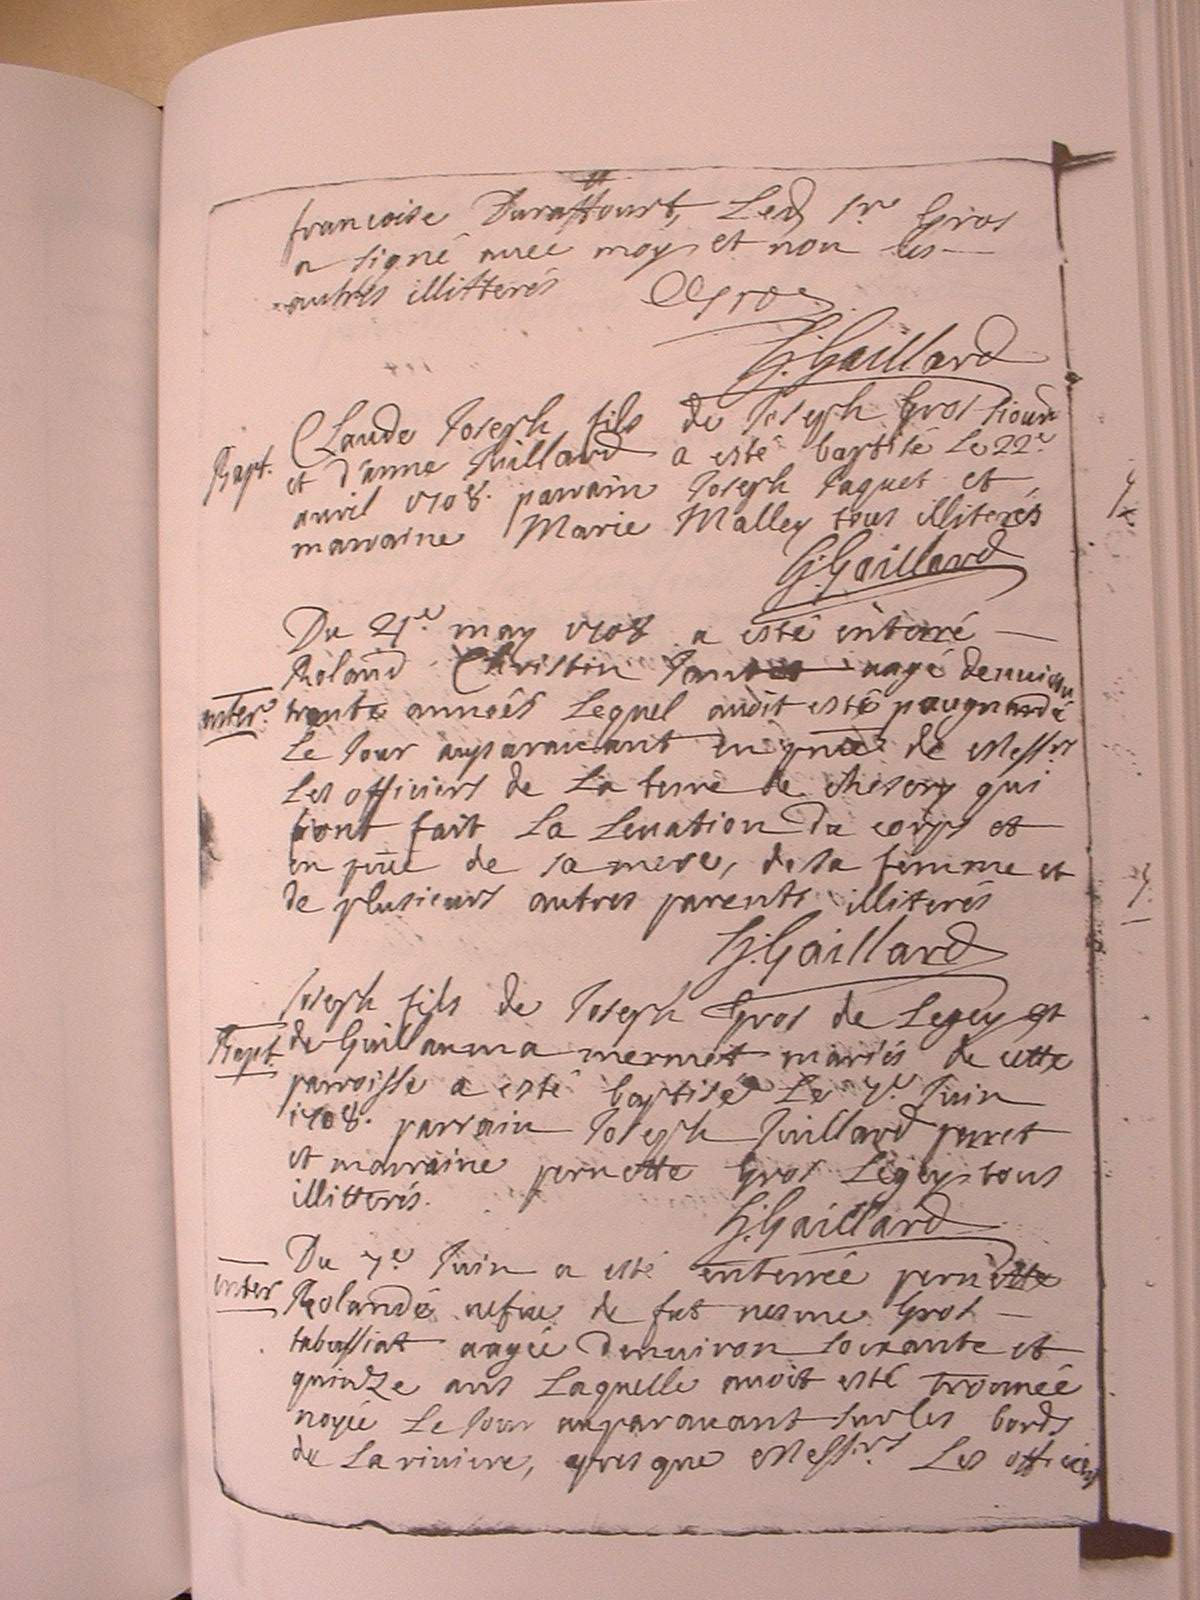 francoise Duraffourt, Led Sr Gros
a signé avec moy et non les
autres illitterés
Gros
G. Gaillard
Bapt.
Claude Joseph fils de Joseph Gros
et d'anne Juillard a esté baptisé Le 22e
avril 1708. parrain Joseph Paquet et
marraine Marie Malley tous illiterés
G. Gaillard
Du 21e may 1708 a esté enterré
Roland Christin aagé denviron
enter.
trente années Lequel avoit esté pougnardé
Le Jour auparavant en pnce de Messrs
Les officiers de La terre de chesery qui
ont fait La Levation Du corps et
en pnce de sa mere, de sa femme et
de plusieurs autres parents illiterés
G. Gaillard
Joseph fils de Joseph Gros de Legey et
Bapt.
de Guillauma mermet mariés de cette
parroisse a esté baptisé Le 7e Juin
1708. parrain Joseph Juillard perret
et marraine pernette Gros Legey tous
illitterés.
G. Gaillard
Du 7e Juin a esté enterrée pernette
enter
Rolandé vefve de fut nesme Gros
tabussiat aagée Denviron soixante et
quindze ans Laquelle avoit esté trouvée
noyée Le Jour auparavant sur les bords
de La riviere, apres que Messrs Les officiers